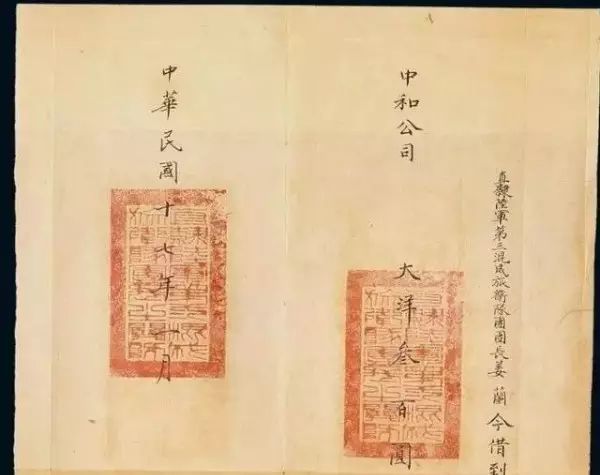 直隸陸軍第三混成旅衛隊團團長姜蘭今借到
中和公司
大洋叁百圓
中華民國十七年一月